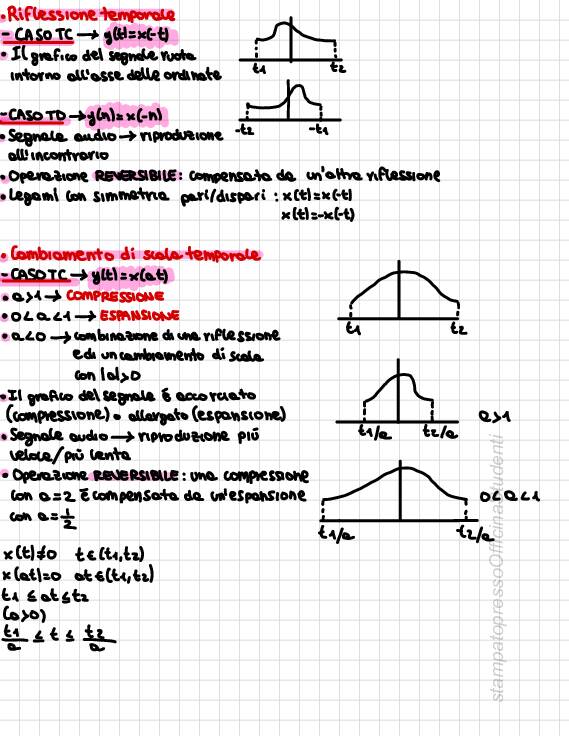 • Riflessione temporale
- CASO TC → y(t)=x(-t)
• Il grafico del segnale ruota
intorno all'asse delle ordinate
t1 t2
- CASO TD → y(n)=x(-n)
-t2 -t1
• Segnale audio → riproduzione
all'incontrario
• Operazione REVERSIBILE: compensata da un'altra riflessione
• Legami con simmetria pari/dispari : x(t)=x(-t)
x(t)=-x(-t)
• Cambiamento di scala temporale
- CASO TC → y(t)=x(at)
• a>1 → COMPRESSIONE
• 0<a<1 → ESPANSIONE
t1 t2
• a<0 → combinazione di una riflessione
e di un cambiamento di scala
con |a|>0
• Il grafico del segnale è accorciato
(compressione) o allargato (espansione)
a>1
t1/a t2/a
• Segnale audio → riproduzione più
veloce/più lenta
• Operazione REVERSIBILE: una compressione
con a=2 è compensata da un'espansione
0<a<1
con a=1/2
t1/a t2/a
x(t)≠0 t∈(t1,t2)
x(at)=0 at∈(t1,t2)
t1 ≤ at ≤ t2
(a>0)
t1/a ≤ t ≤ t2/a
stampatopressoOfficinastudenti